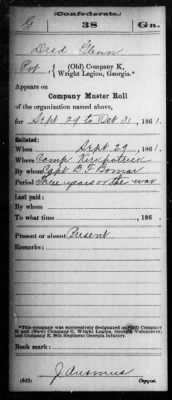 (Confederate.)
G 38 Gn.
Dred Glenn
Pvt (Old) Company K,
Wright Legion, Georgia.*
Appears on
Company Muster Roll
of the organization named above,
for Sept. 29 to Oct 31, 1861.
Enlisted:
When Sept 29, 1861.
Where Camp Kirkpatrick
By whom Capt. B. F. Bomar
Period Three years or the war
Last paid:
By whom
To what time , 186 .
Present or absent Present
Remarks:
*This company was successively designated as (Old) Company
K and (New) Company C, Wright Legion, Georgia Volunteers;
and Company 38th Regiment Georgia Infantry.
Book mark:
(642) Copyist.